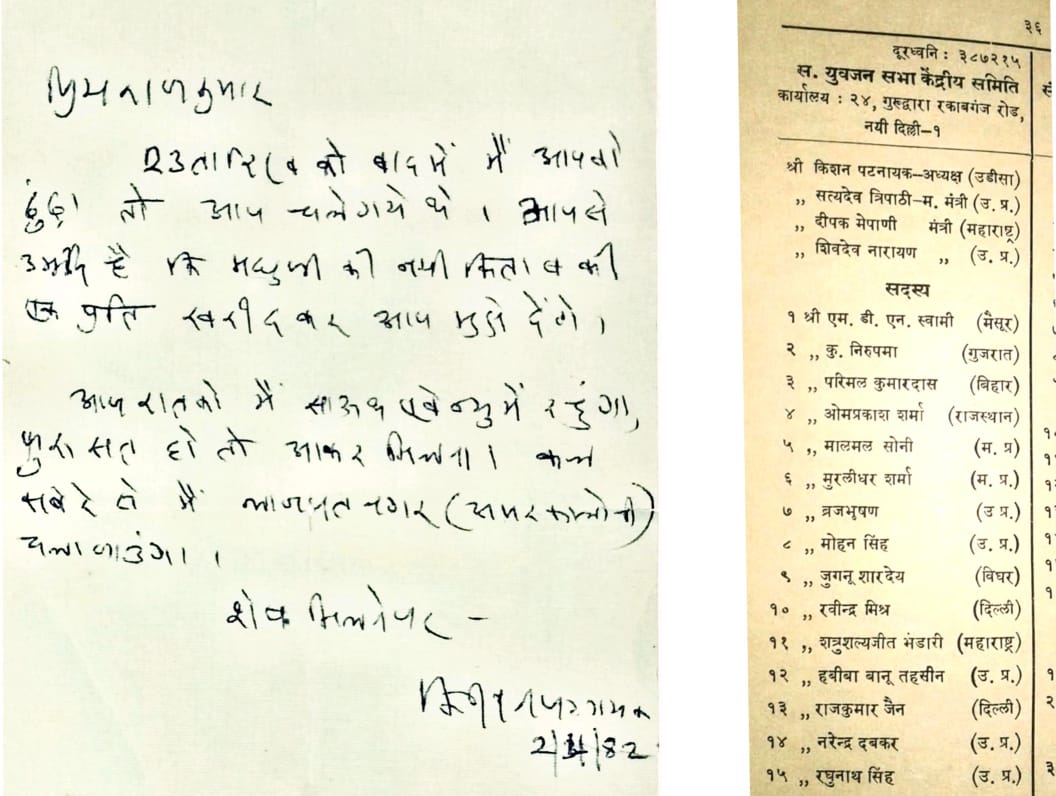 प्रिय राजकुमार
23 तारिख को बाद में मैं आपको
ढुंढ़ा तो आप चले गये थे । आपसे
उम्मीद है कि मधुजी की नयी किताब की
एक प्रति खरीद कर आप मुझे देंगे ।
आज रात को मैं साऊथ एवेन्यु में रहुंगा,
फुरसत हो तो आकर मिलना । कल
सबेरे से मैं लाजपत नगर (अमर कालोनी)
चला जाउंगा । ।
शेष मिलने पर –
किशन पटनायक
2/4/82
३६
दूरध्वनि : ३८७२१५
स. युवजन सभा केंद्रीय समिति
कार्यालय : २४, गुरुद्वारा रकाबगंज रोड,
नयी दिल्ली–१
श्री किशन पटनायक–अध्यक्ष (उडीसा)
,, सत्यदेव त्रिपाठी–म. मंत्री (उ. प्र.)
,, दीपक मेपाणी मंत्री (महाराष्ट्र)
,, शिवदेव नारायण ,, (उ. प्र.)
सदस्य
१ श्री एम. डी. एन. स्वामी (मैसूर)
२ ,, कु. निरुपमा (गुजरात)
३ ,, परिमल कुमारदास (बिहार)
४ ,, ओमप्रकाश शर्मा (राजस्थान)
५ ,, मालमल सोनी (म. प्र)
६ ,, मुरलीधर शर्मा (म. प्र.)
७ ,, व्रजभुषण (उ प्र.)
८ ,, मोहन सिंह (उ. प्र.)
९ ,, जुगनू शारदेय (विघर)
१० ,, रवीन्द्र मिश्र (दिल्ली)
११ ,, शत्रुशल्यजीत भंडारी (महाराष्ट्र)
१२ ,, हबीबा बानू तहसीन (उ. प्र.)
१३ ,, राजकुमार जैन (दिल्ली)
१४ ,, नरेन्द्र दबकर (उ. प्र.)
१५ ,, रघुनाथ सिंह (उ. प्र.)